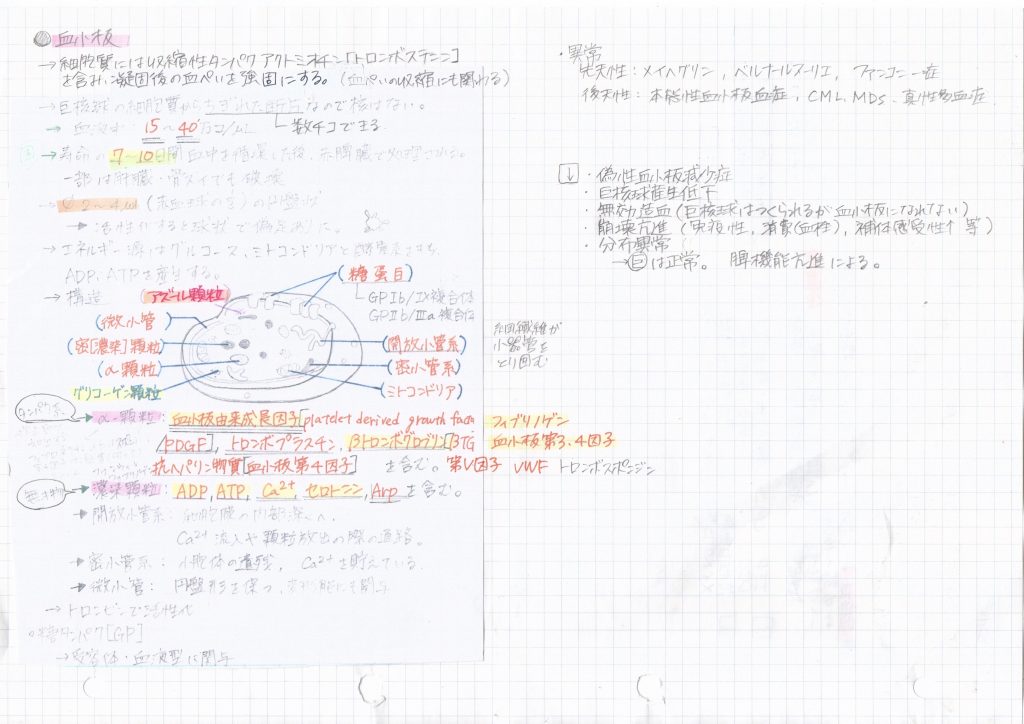 血小板
→細胞質には収縮性タンパク アクトミオイン[トロンボステニン]
を含み、凝固後の血ぺいを強固にする。(血ぺいの収縮にも関わる)
→巨核球の細胞質からちぎれた断片なので核はない。
→血液中: 15~40万コ/μL 数千コできる
→寿命の7~10日間 血中を循環した後、脾臓で処理される。
一部は肝臓・骨ズイでも破壊
→φ2~4μ
→活性化すると
→エネルギー源はグルコース、ミトコンドリアと
ADP、ATPを産生する。
→構造
(アズール顆粒)
(糖蛋白)
GPⅠb/Ⅸ複合体
GPⅡb/Ⅲa複合体
(微小管)
(密[濃染]顆粒)
(α顆粒)
グリコーゲン顆粒
(開放小管系)
(密小管系)
(ミトコンドリア)
細繊維が
小器管を
とり囲む
タンパク系
α-顆粒: 血小板由来成長因子[platelet derived growth factor フィブリノゲン
/PDGF]、トロンボプラスチン、βトロンボグロブリン[βTG 血小板第3、4因子
抗ヘパリン物質[血小板第4因子] を含む。第Ⅴ因子 VWF トロンボスポンジン
無機物
濃染顆粒: ADP, ATP, Ca²⁺, セロトニン, Arpを含む。
→開放小管系: 細胞膜の内部深くへ、
Ca²⁺流入や顆粒放出の際の通路。
→密小管系: 小胞体の遺残、Ca²⁺を貯えている。
→微小管: 円盤形を保つ、変形能にも関与
→トロンビンで活性化
糖タンパク[GP]
→受容体・血液型に関与
・異常
先天性: メイヘグリン, ベルナールスーリエ, ファンコニー症
後天性: 本態性血小板血症, CML、MDS、真性多血症
↓
・偽性血小板減少症
・巨核球産生低下
・無効造血(巨核球はつくられるが血小板になれない)
・崩壊亢進(免疫性, 消費(血栓), 補体感受性↑ 等)
・分布異常
→巨は正常。 脾機能亢進による。